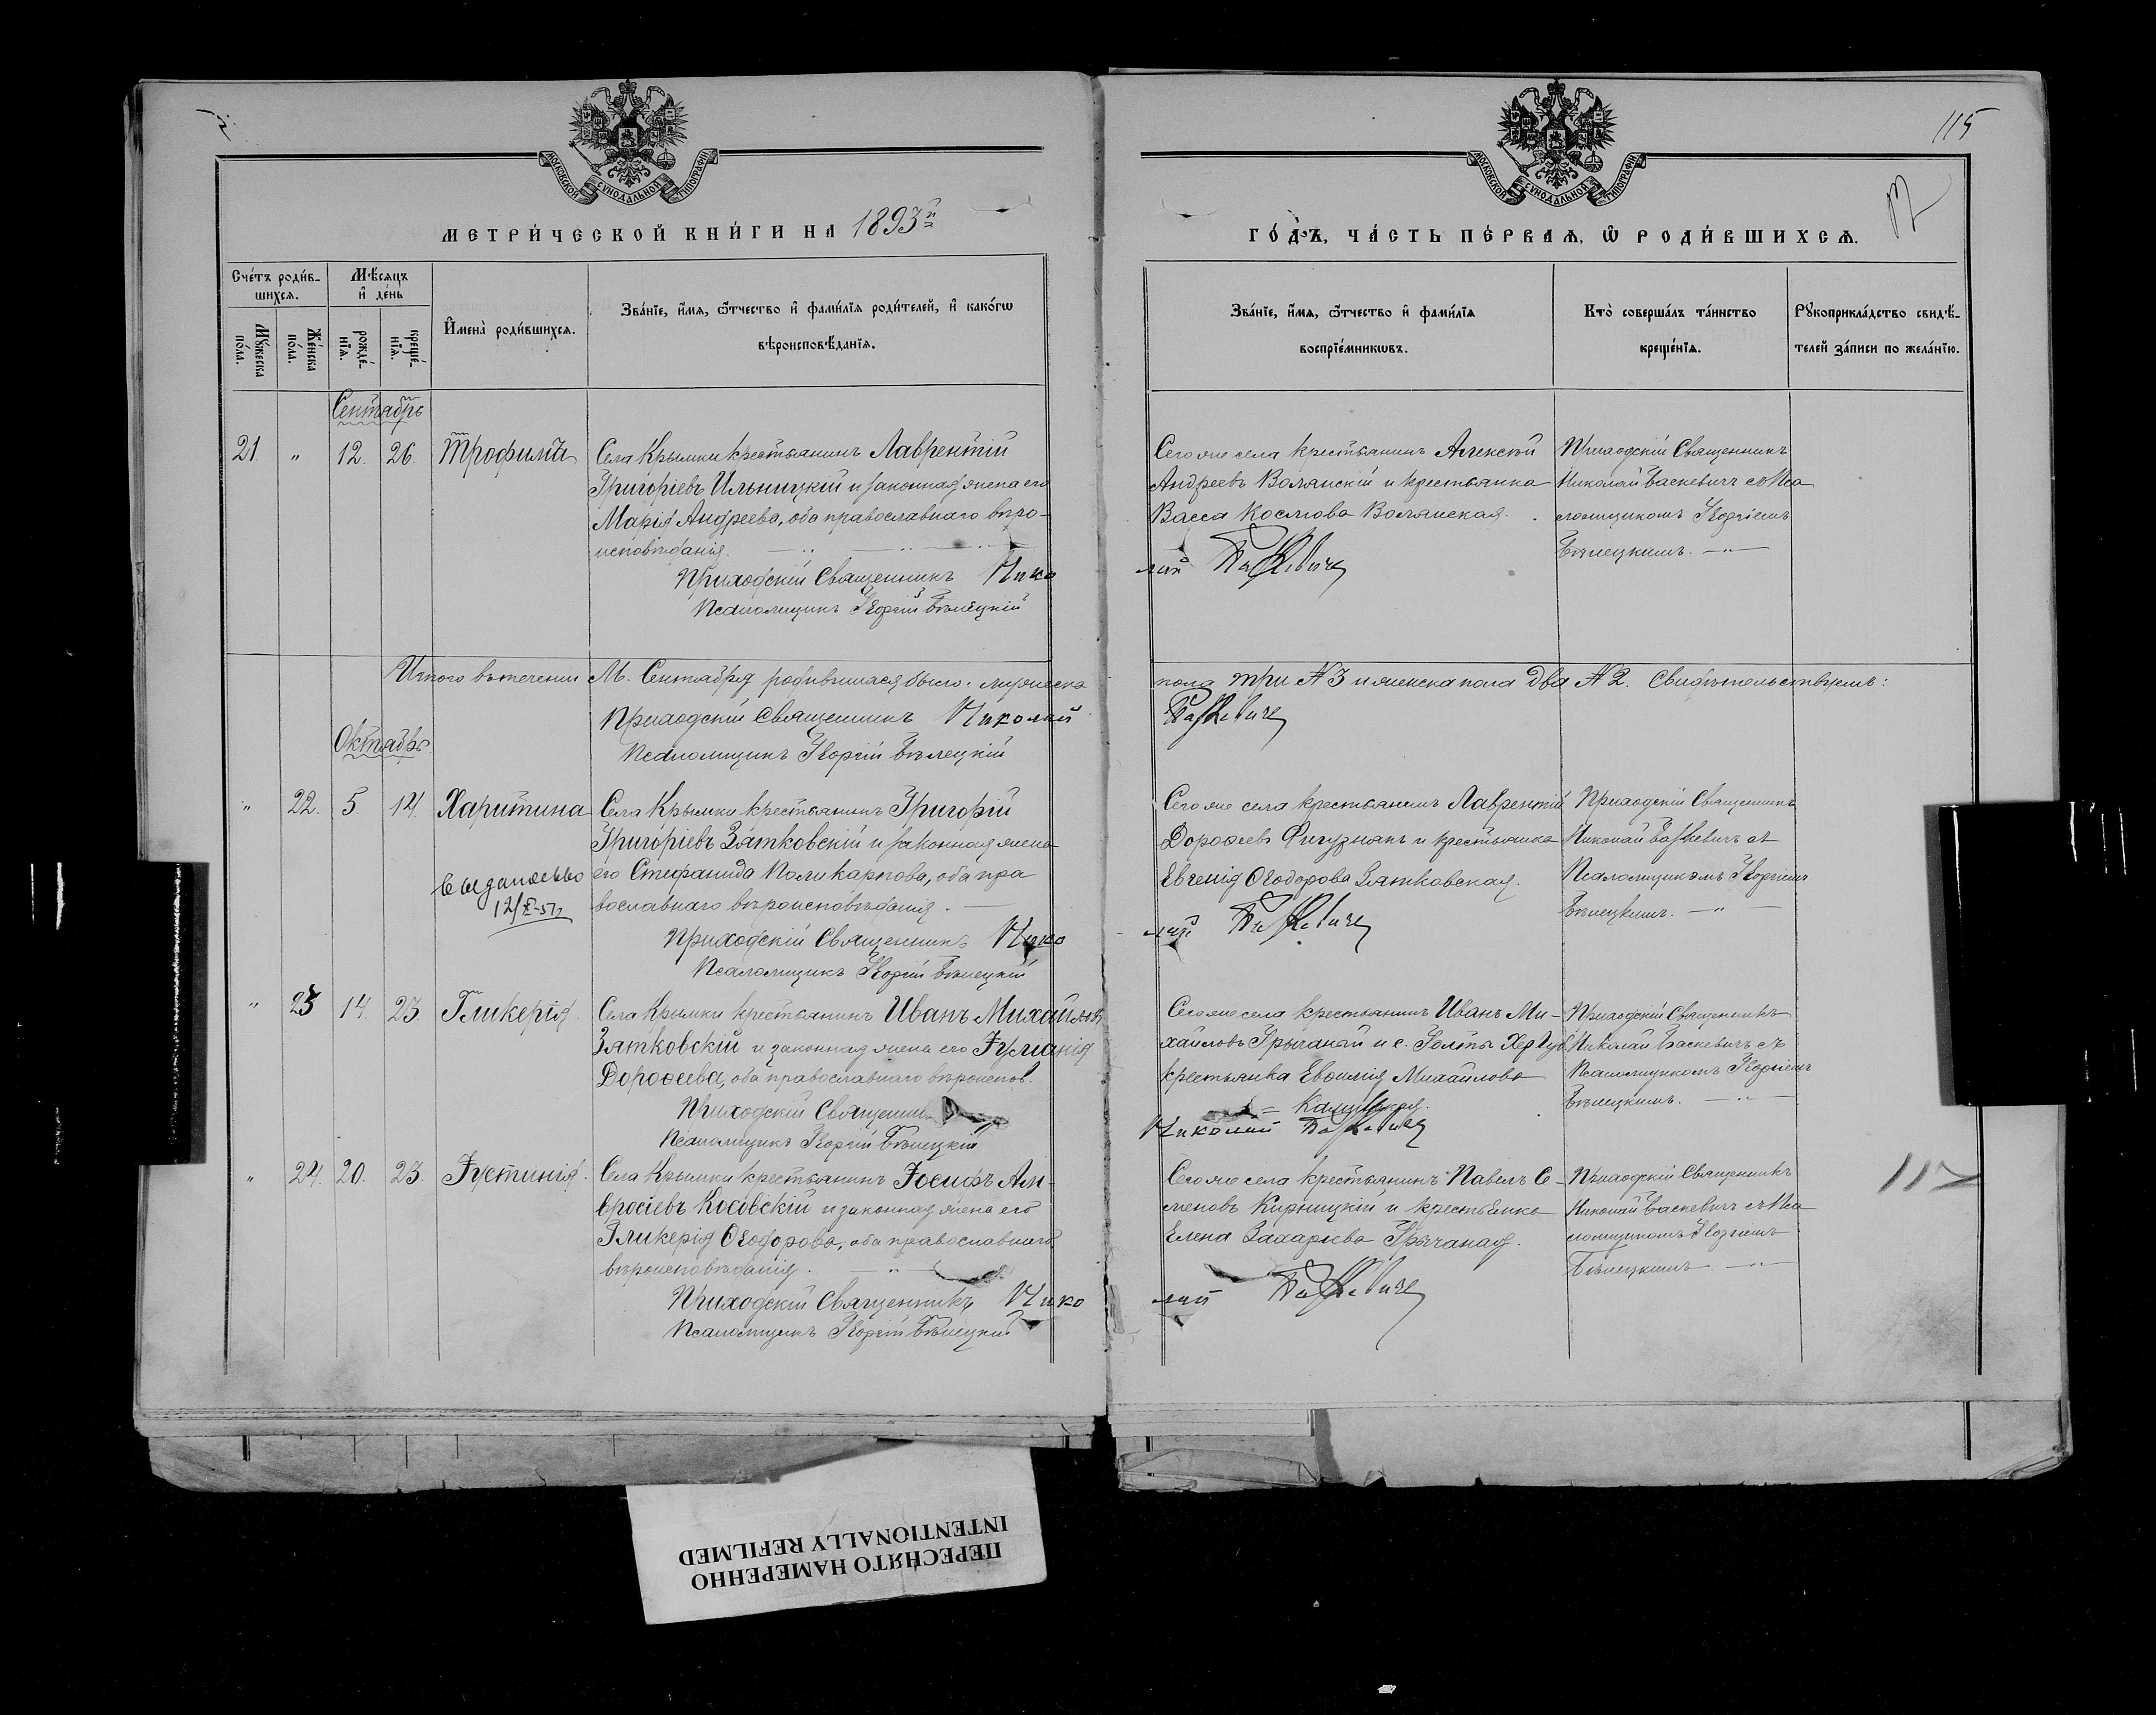 115
МОСКОВСКОЙ СѴНОДАЛЬНОЙ ТИПОГРАФІИ
МОСКОВСКОЙ СѴНОДАЛЬНОЙ ТИПОГРАФІИ
МЕТРИ́ЧЕСКОЙ КНИ́ГИ НА 1893й
ГО́ДЪ, ЧА́СТЬ ПЕ́РВАѦ, Ѡ҆ РОДИ́ВШИХСѦ.
Сче́тъ роди́в-
шихсѧ.
Мꙋ́жеска по́ла.
Же́нска по́ла.
Мѣ́сѧцъ
и҆ де́нь
рожде́-нїѧ.
креще́-нїѧ.
И҆мена̀ роди́вшихсѧ.
Зва́нїе, и҆́мѧ, ѻ҆́тчество и҆ фами́лїѧ роди́телей, и҆ како́гѡ
вѣроисповѣ́данїѧ.
Зва́нїе, и҆́мѧ, ѻ҆́тчество и҆ фами́лїѧ
воспрїе́мникѡвъ.
Кто̀ соверша́лъ та́инство
креще́нїѧ.
Рꙋкоприкла́дство свидѣ́-
телей за́писи по жела́нїю.
Сентябрь
21 " 12. 26. Трофимъ
Села Крымки крестьянинъ Лаврентій
Григоріевъ Ильницкій и законная жена его
Марія Андреева, оба православнаго веро-
исповѣданія.
Приходскій Священникъ Нико
Псаломщикъ Георгій Бѣлецкій
Сего же села крестьянинъ Алексѣй
Андреевъ Волянскій и крестьянка
Васса Космова Волянская.
лай Баскевичъ
Приходскій Священникъ
Николай Баскевичъ съ Пса
ломщикомъ Георгіемъ
Бѣлецкимъ.
Итого втеченіи М. Сентября родившихся было: мужеска
пола три № 3 и женска пола два № 2. Свидѣтельствуемъ:
Приходскій Священникъ Николай
Баскевичъ
Псаломщикъ Георгій Бѣлецкій
Октябрь
" 22. 5. 14. Харитина
Села Крымки крестьянинъ Григорій
Григоріевъ Зятковскій и законная жена
его Стефанида Поликарпова, оба пра
вославнаго вѣроисповѣданія.
Приходскій Священникъ Нико
Псаломщикъ Георгій Бѣлецкій
Сего же села крестьянинъ Лаврентій
Дорофеевъ и крестьянка
Евгенія Ѳеодорова Зятковская.
лай Баскевичъ
Приходскій Священникъ
Николай Баскевичъ съ
Псаломщикомъ Георгіемъ
Бѣлецкимъ.
" 23 14. 23. Гликерія.
Села Крымки крестьянинъ Иванъ Михайловъ
Зятковскій и законная жена его Іуліанія
Дороѳеева, оба православнаго вѣроиспов.
Приходскій Священни
Псаломщикъ Георгій Бѣлецкій
Сего же села крестьянинъ Иванъ Ми-
хайловъ Грычаный и с. Голты Хер. Губ.
крестьянка Евѳимія Михайлова
Николай Баскевичъ
Приходскій Священникъ
Николай Баскевичъ съ
Псаломщикомъ Георгіемъ
Бѣлецкимъ.
" 24. 20. 23. Іустинія.
Села Крымки крестьянинъ Іосифъ Ам-
вросіевъ Косовскій и законная жена его
Гликерія Ѳеодорова, оба православнаго
вѣроисповѣданія.
Приходскій Священникъ Нико
Псаломщикъ Георгій Бѣлецкій
Сего же села крестьянинъ Павелъ Се-
меновъ Кирницкій и крестьянка
Елена Захаріева Грычаная.
лай Баскевичъ
Приходскій Священникъ
Николай Баскевичъ съ Пса
ломщикомъ Георгіемъ
Бѣлецкимъ
117
ПЕРЕСНЯТО НАМЕРЕННО
INTENTIONALLY REFILMED